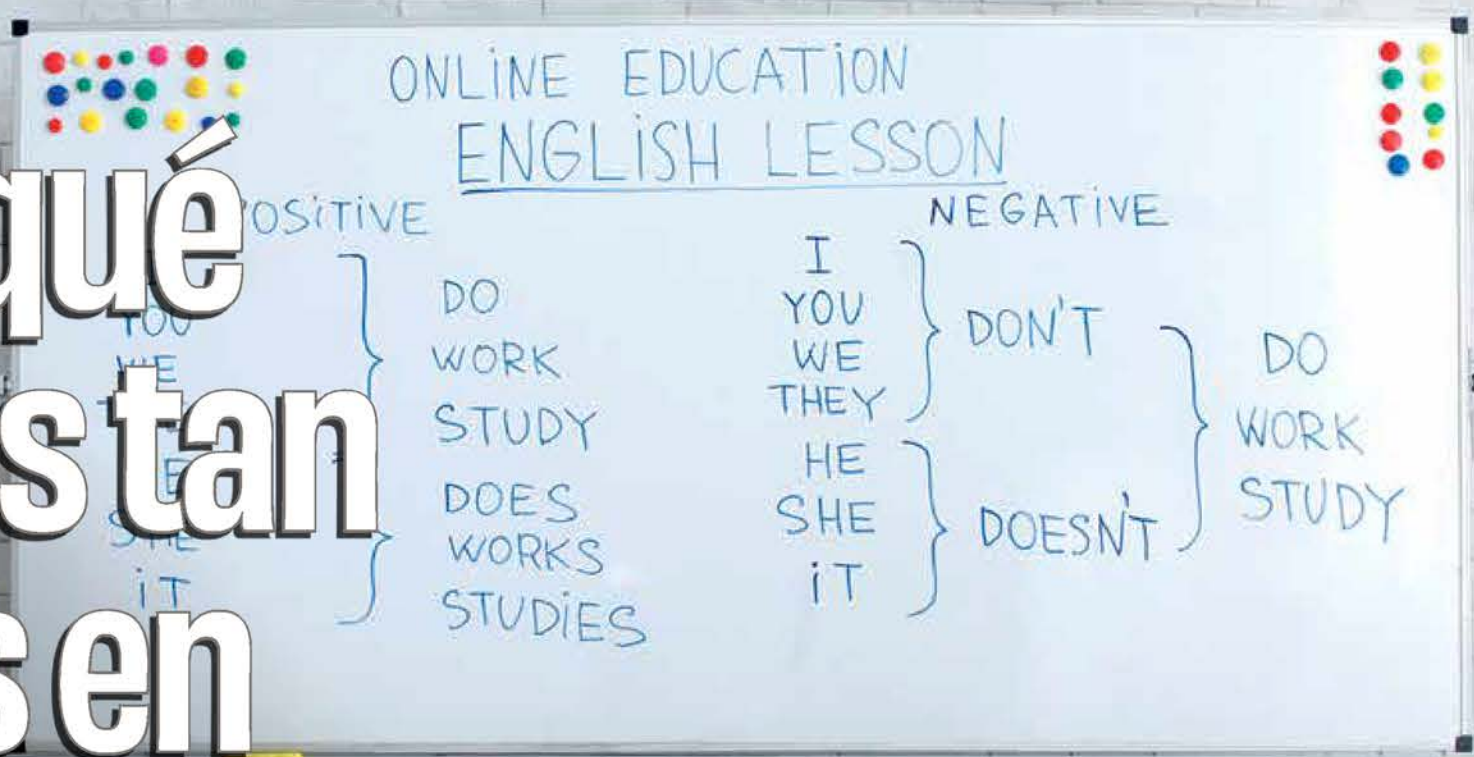 ONLINE EDUCATION
ENGLISH LESSON
qué
s tan
s en
OSITIVE
YOU
WE
SHE
IT
DO
WORK
STUDY
DOES
WORKS
STUDIES
NEGATIVE
I
YOU
WE
THEY
HE
SHE
IT
DON'T
DOESN'T
DO
WORK
STUDY